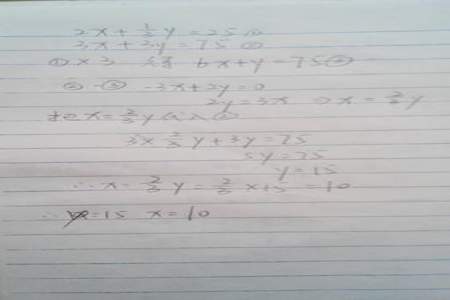 2x + 1/3 y = 25 ①
3x + 3y = 75 ②
① × 3 得 6x + y = 75 ③
② - ③ -3x + 2y = 0
2y = 3x x = 2/3 y
把 x = 2/3 y 代入 ②
3 × 2/3 y + 3y = 75
5y = 75
y = 15
∴ x = 2/3 y = 2/3 × 15 = 10
∴ y = 15 x = 10